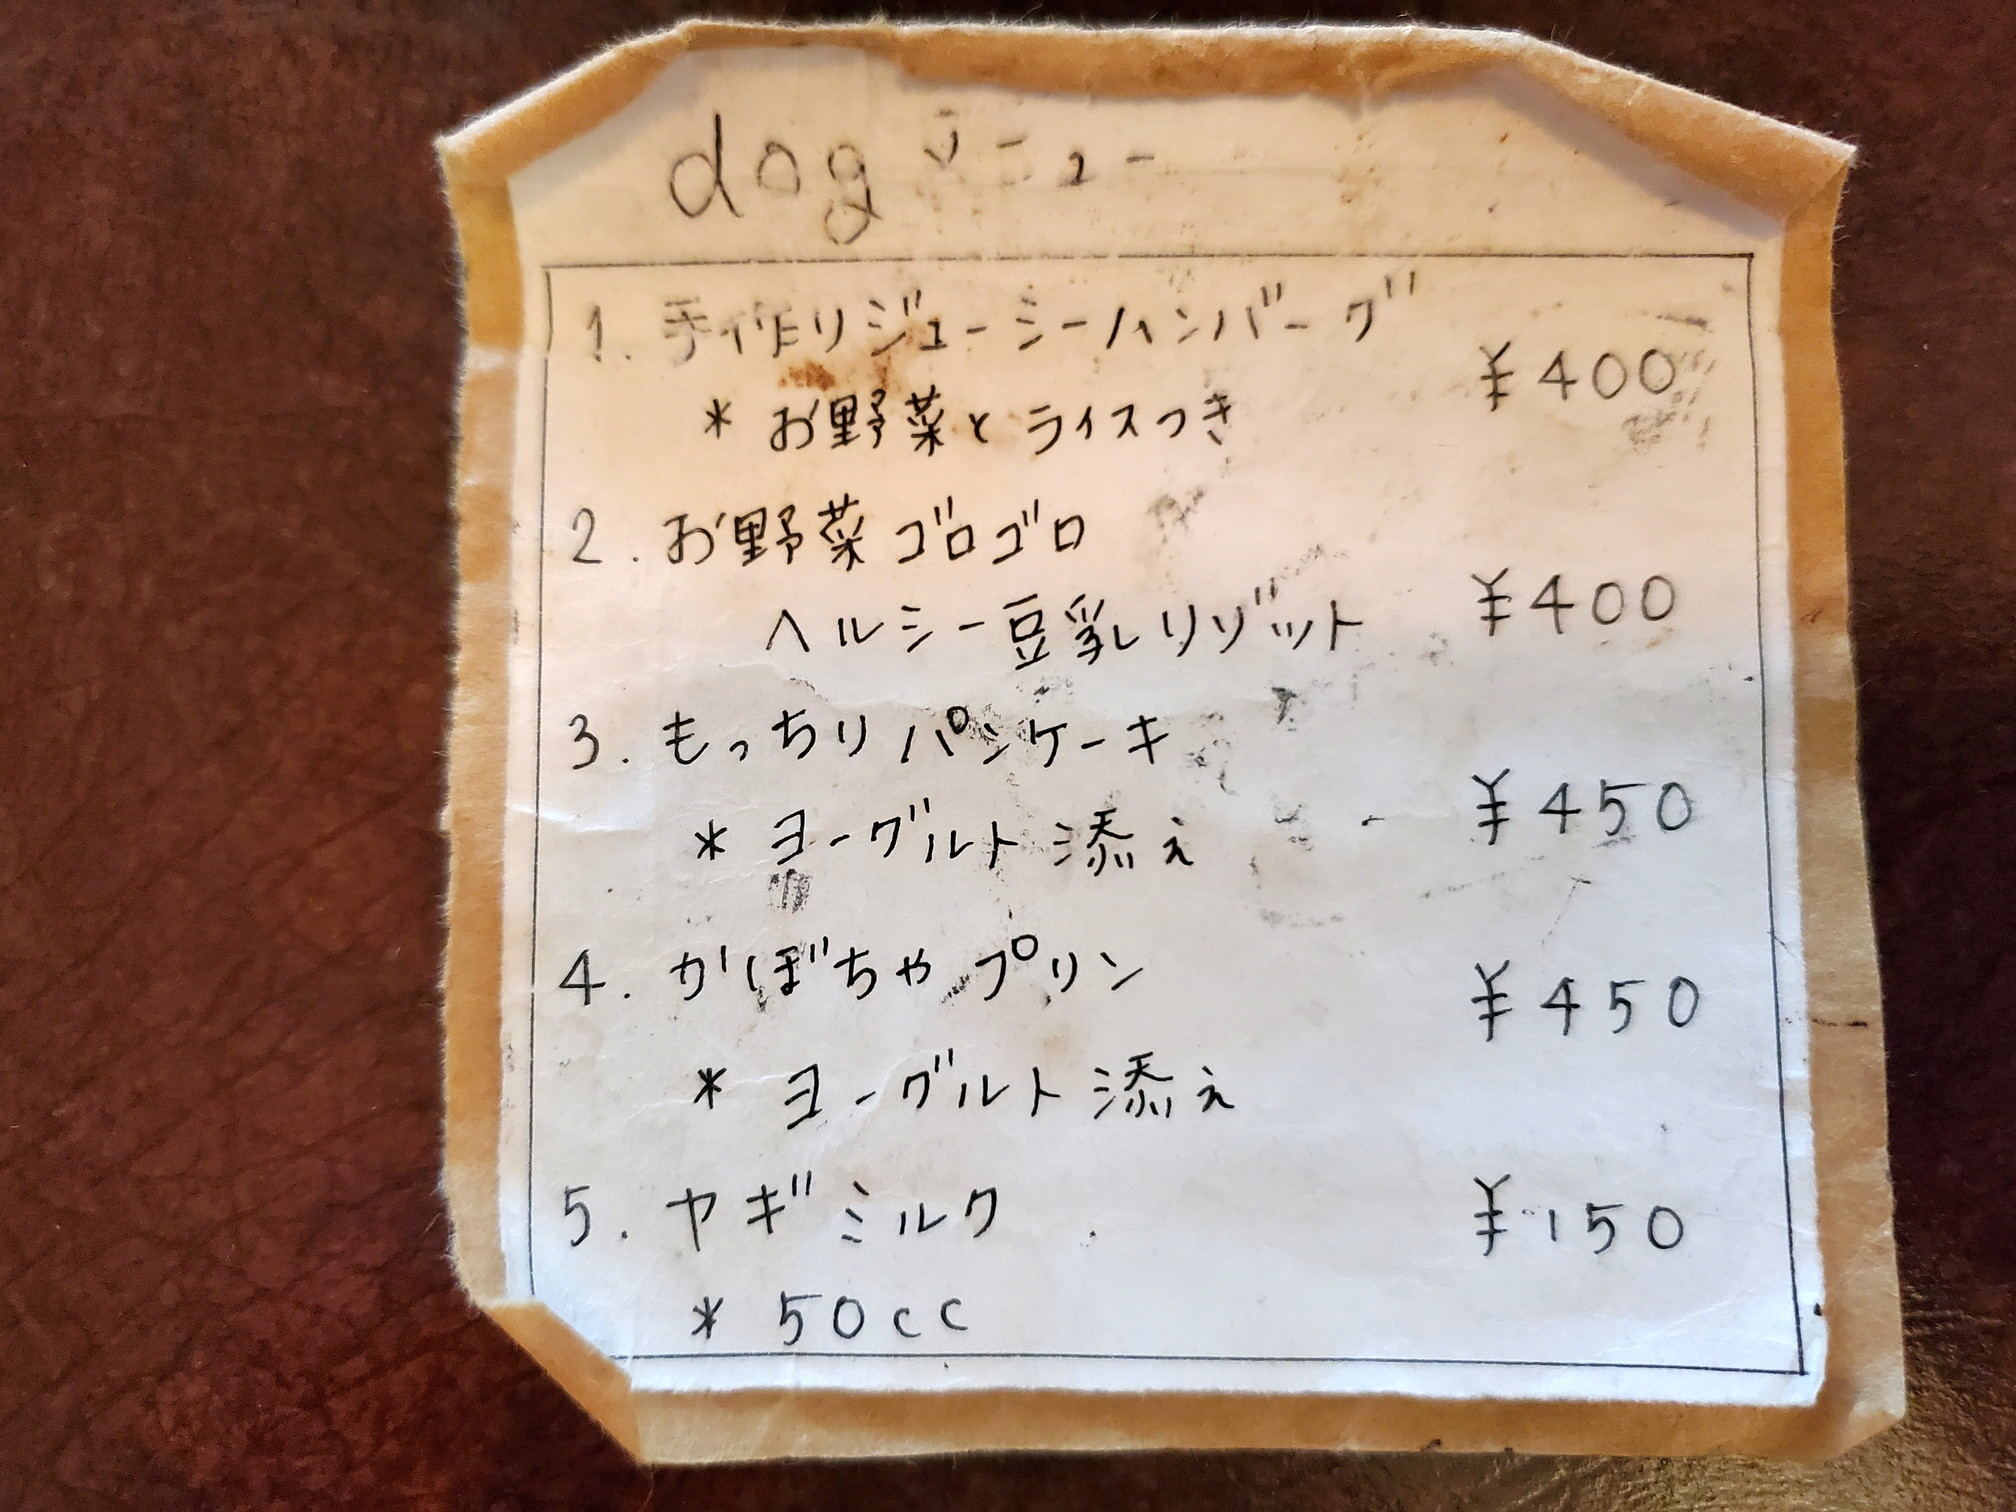 dog メニュー
1. 手作りジューシーハンバーグ
¥400
* お野菜とライスつき
2. お野菜ゴロゴロ
ヘルシー豆乳リゾット ¥400
3. もっちりパンケーキ
* ヨーグルト添え ¥450
4. かぼちゃプリン
¥450
* ヨーグルト添え
5. ヤギミルク ¥150
* 50cc